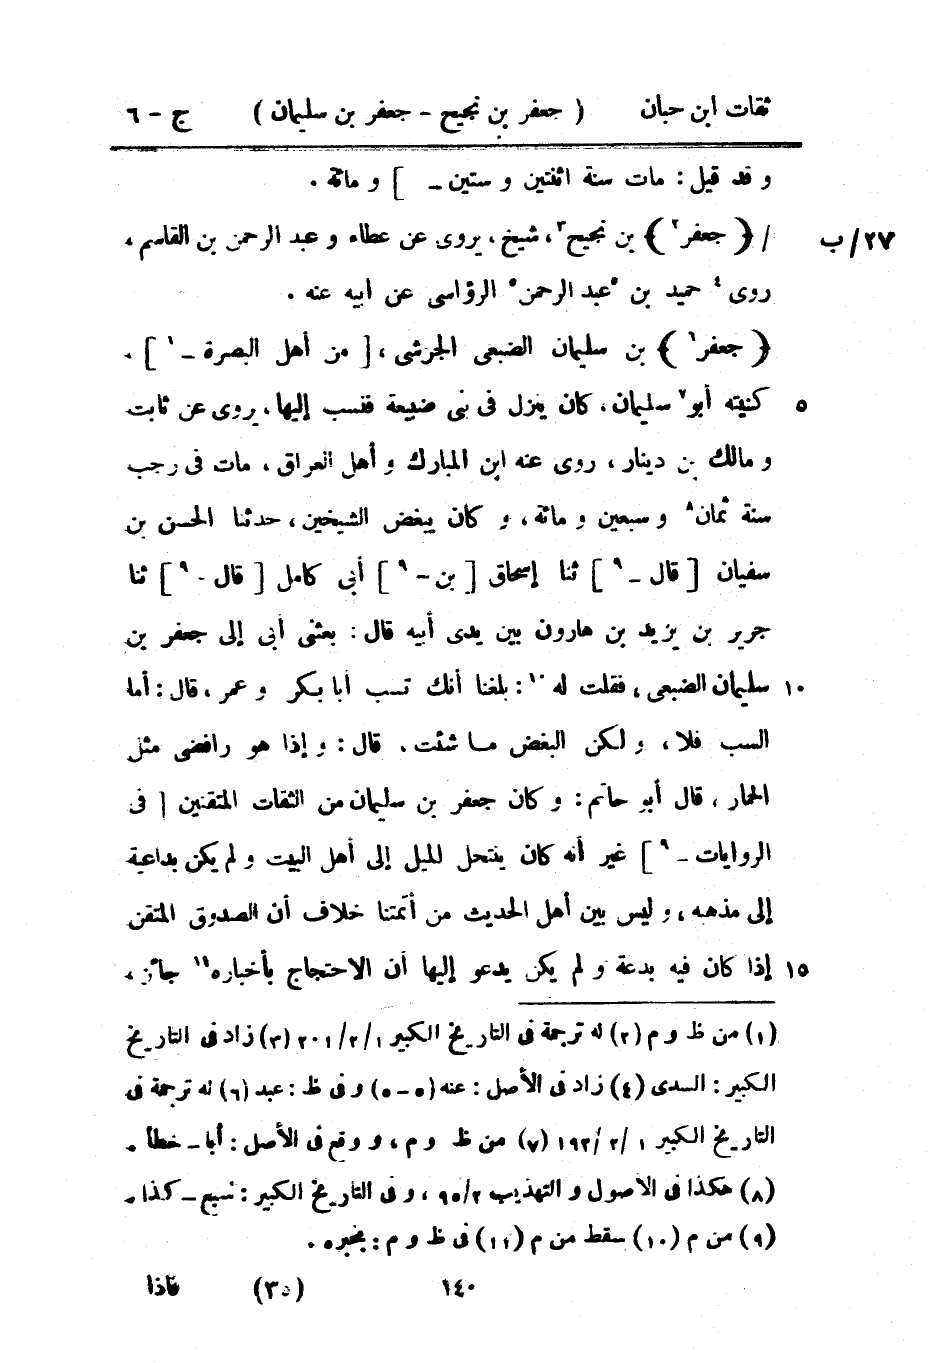 ثقات ابن حبان ( جعفر بن نجيح - جعفر بن سليمان ) ج - ٦
و قد قيل : مات سنة اثنتين و ستين - ] و مائة .
٢٧/ب / ﴿ جعفر٢ ﴾ بن نجيح٣، شيخ، يروى عن عطاء و عبد الرحمن بن القاسم،
روى٤ حميد بن ٥عبد الرحمن٥ الرؤاسى عن ابيه عنه .
﴿ جعفر٦ ﴾ بن سليمان الضبعى الجرشى، [ من أهل البصرة - ١ ] .
٥ كنيته أبو٧ سليمان، كان ينزل فى بنى ضبيعة فنسب إليها، يروى عن ثابت
و مالك بن دينار، روى عنه ابن المبارك و أهل العراق، مات فى رجب
سنة ثمان٨ و سبعين و مائة، و كان يبغض الشيخين، حدثنا الحسن بن
سفيان [ قال - ٩ ] ثنا إسحاق [ بن - ٩ ] أبى كامل [ قال - ٩ ] ثنا
جرير بن يزيد بن هارون بين يدى أبيه قال : بعثنى أبى إلى جعفر بن
١٠ سليمان الضبعى، فقلت له١٠ : بلغنا أنك تسب أبا بكر و عمر، قال : أما
السب فلا، و لكن البغض ما شئت، قال : و إذا هو رافضى مثل
الحمار، قال أبو حاتم : و كان جعفر بن سليمان من الثقات المتقنين [ فى
الروايات - ٩ ] غير أنه كان ينتحل الميل إلى أهل البيت و لم يكن بداعية
إلى مذهبه، و ليس بين أهل الحديث من أئمتنا خلاف أن الصدوق المتقن
١٥ إذا كان فيه بدعة و لم يكن يدعو إليها أن الاحتجاج بأخباره١١ جائز،
(١) من ظ و م (٢) له ترجمة فى التاريخ الكبير ١/٢/٢٠١ (٣) زاد فى التاريخ
الكبير : السدى (٤) زاد فى الأصل : عنه (٥-٥) و فى ظ : عبد (٦) له ترجمة فى
التاريخ الكبير ١/٢/١٩٢ (٧) من ظ و م، و وقع فى الأصل : أبا - خطأ .
(٨) هكذا فى الأصول و التهذيب ٩٥/٢، و فى التاريخ الكبير : تسع - كذا .
(٩) من م (١٠) سقط من م (١١) فى ظ و م : بخبره .
١٤٠ (٣٥) فاذا